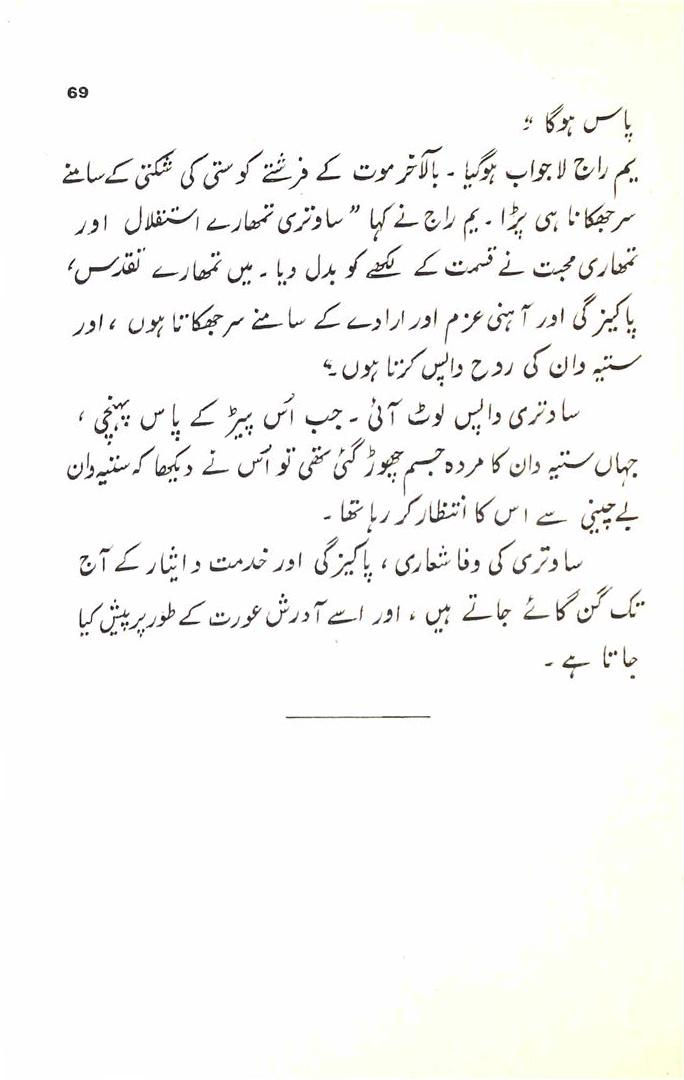 69
پاس ہوگا ۔"
یم راج لاجواب ہوگیا ۔ بالآخر موت کے فرشتے کو ستی کی شکتی کے سامنے
سر جھکانا ہی پڑا ۔ یم راج نے کہا " ساوتری تمھارے استقلال اور
تمھاری محبت نے قسمت کے لکھے کو بدل دیا ۔ میں تمھارے تقدس،
پاکیزگی اور آہنی عزم اور ارادے کے سامنے سر جھکاتا ہوں ، اور
ستیہ وان کی روح واپس کرتا ہوں ۔"
ساوتری واپس لوٹ آئی ۔ جب اُس پیڑ کے پاس پہنچی ،
جہاں ستیہ وان کا مردہ جسم چھوڑ گئی تھی تو اُس نے دیکھا کہ ستیہ وان
بے چینی سے اس کا انتظار کر رہا تھا ۔
ساوتری کی وفا شعاری ، پاکیزگی اور خدمت و ایثار کے آج
تک گن گائے جاتے ہیں ، اور اسے آدرش عورت کے طور پر پیش کیا
جاتا ہے ۔